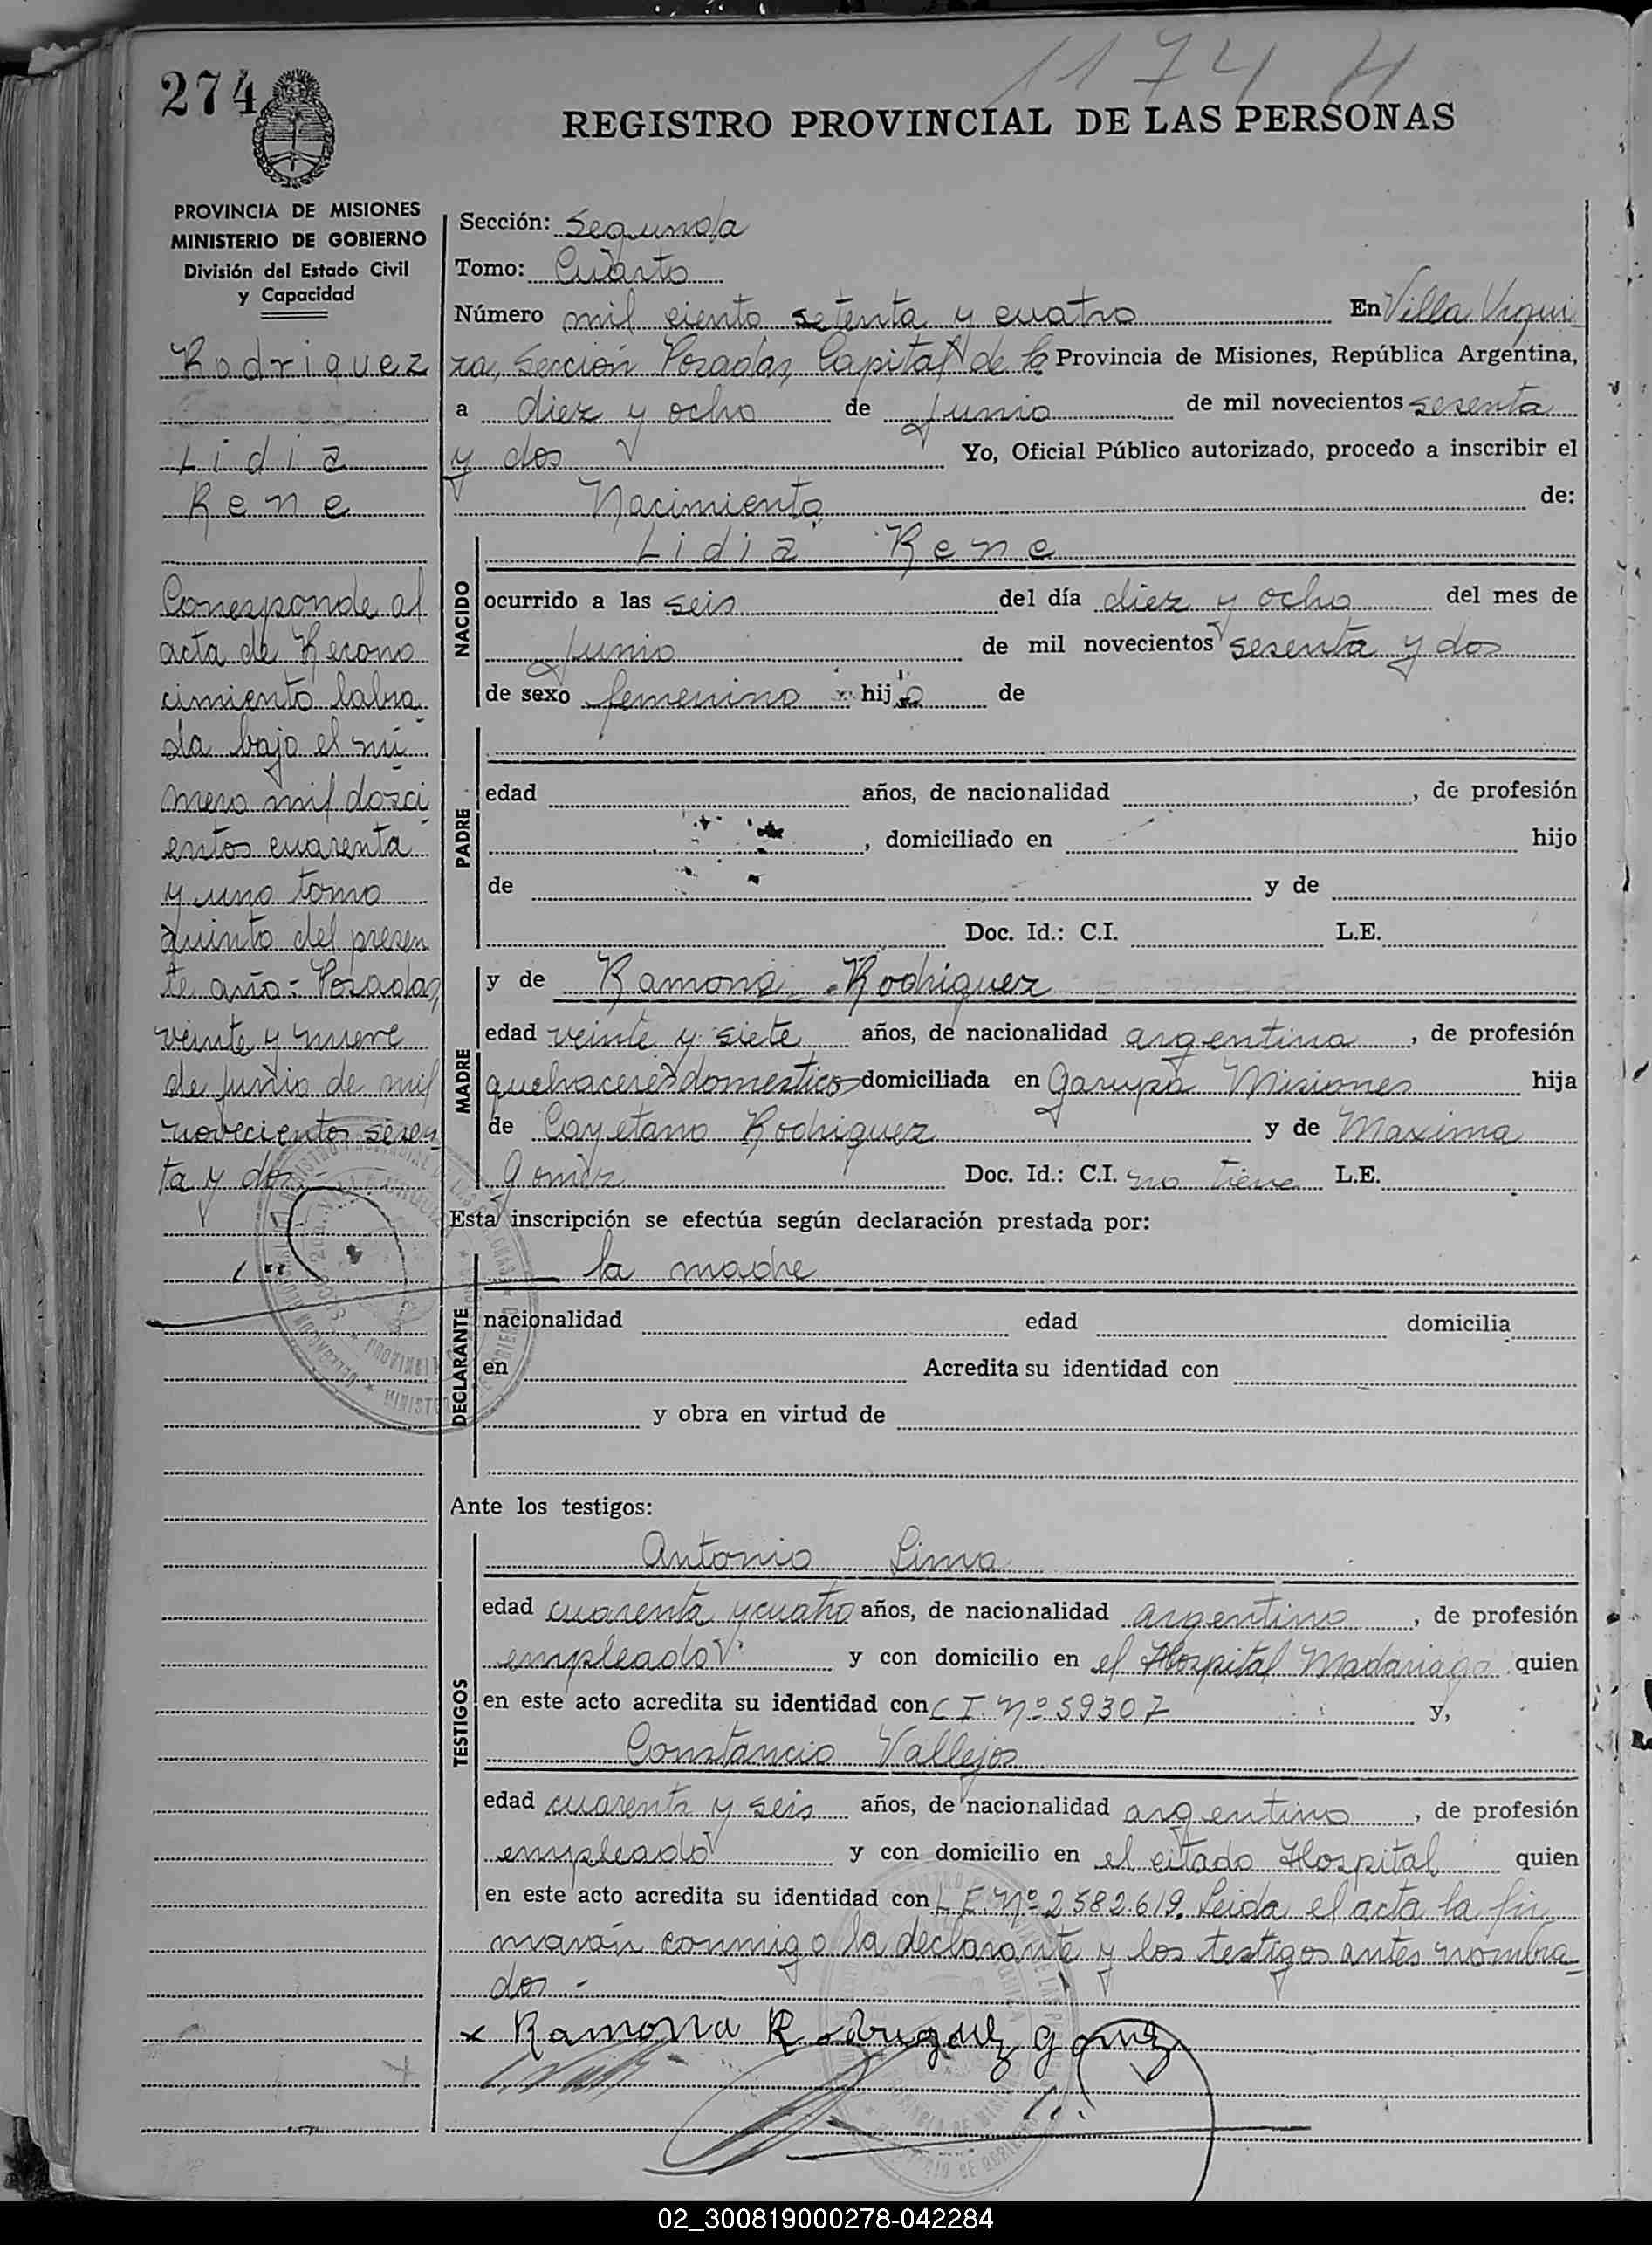 1174 H
274
REGISTRO PROVINCIAL DE LAS PERSONAS
PROVINCIA DE MISIONES
MINISTERIO DE GOBIERNO
División del Estado Civil
y Capacidad
Rodriguez
Lidia
Rene
Corresponde al
acta de Recono
cimiento labra
da bajo el nú
mero mil dosci
entos cuarenta
y uno tomo
quinto del presen
te año - Posadas,
veinte y nueve
de junio de mil
novecientos sesen
ta y dos
Sección: Segunda
Tomo: Cuarto
Número mil ciento setenta y cuatro En Villa Urqui
za, Sección Posadas, Capital de la Provincia de Misiones, República Argentina,
a diez y ocho de Junio de mil novecientos sesenta
y dos Yo, Oficial Público autorizado, procedo a inscribir el
Nacimiento de:
NACIDO
Lidia Rene
ocurrido a las seis del día diez y ocho del mes de
Junio de mil novecientos sesenta y dos
de sexo femenino hija de
PADRE
edad años, de nacionalidad , de profesión
, domiciliado en hijo
de y de
Doc. Id.: C.I. L.E.
MADRE
y de Ramona Rodriguez
edad veinte y siete años, de nacionalidad argentina , de profesión
quehaceres domestico domiciliada en Garupá Misiones hija
de Cayetano Rodriguez y de Maxima
Gomez Doc. Id.: C.I. no tiene L.E.
Esta inscripción se efectúa según declaración prestada por:
DECLARANTE
la madre
nacionalidad edad domicilia
en Acredita su identidad con
y obra en virtud de
Ante los testigos:
TESTIGOS
Antonio Lima
edad cuarenta y cuatro años, de nacionalidad argentino , de profesión
empleado y con domicilio en el Hospital Madariaga quien
en este acto acredita su identidad con C I. Nº 59307 y,
Constancio Vallejos
edad cuarenta y seis años, de nacionalidad argentino , de profesión
empleado y con domicilio en el citado Hospital quien
en este acto acredita su identidad con L E. Nº 2582.619. Leida el acta la fir
marán conmigo la declarante y los testigos antes nombra=
dos.-
x Ramona Rodriguez gomez
02_300819000278-042284